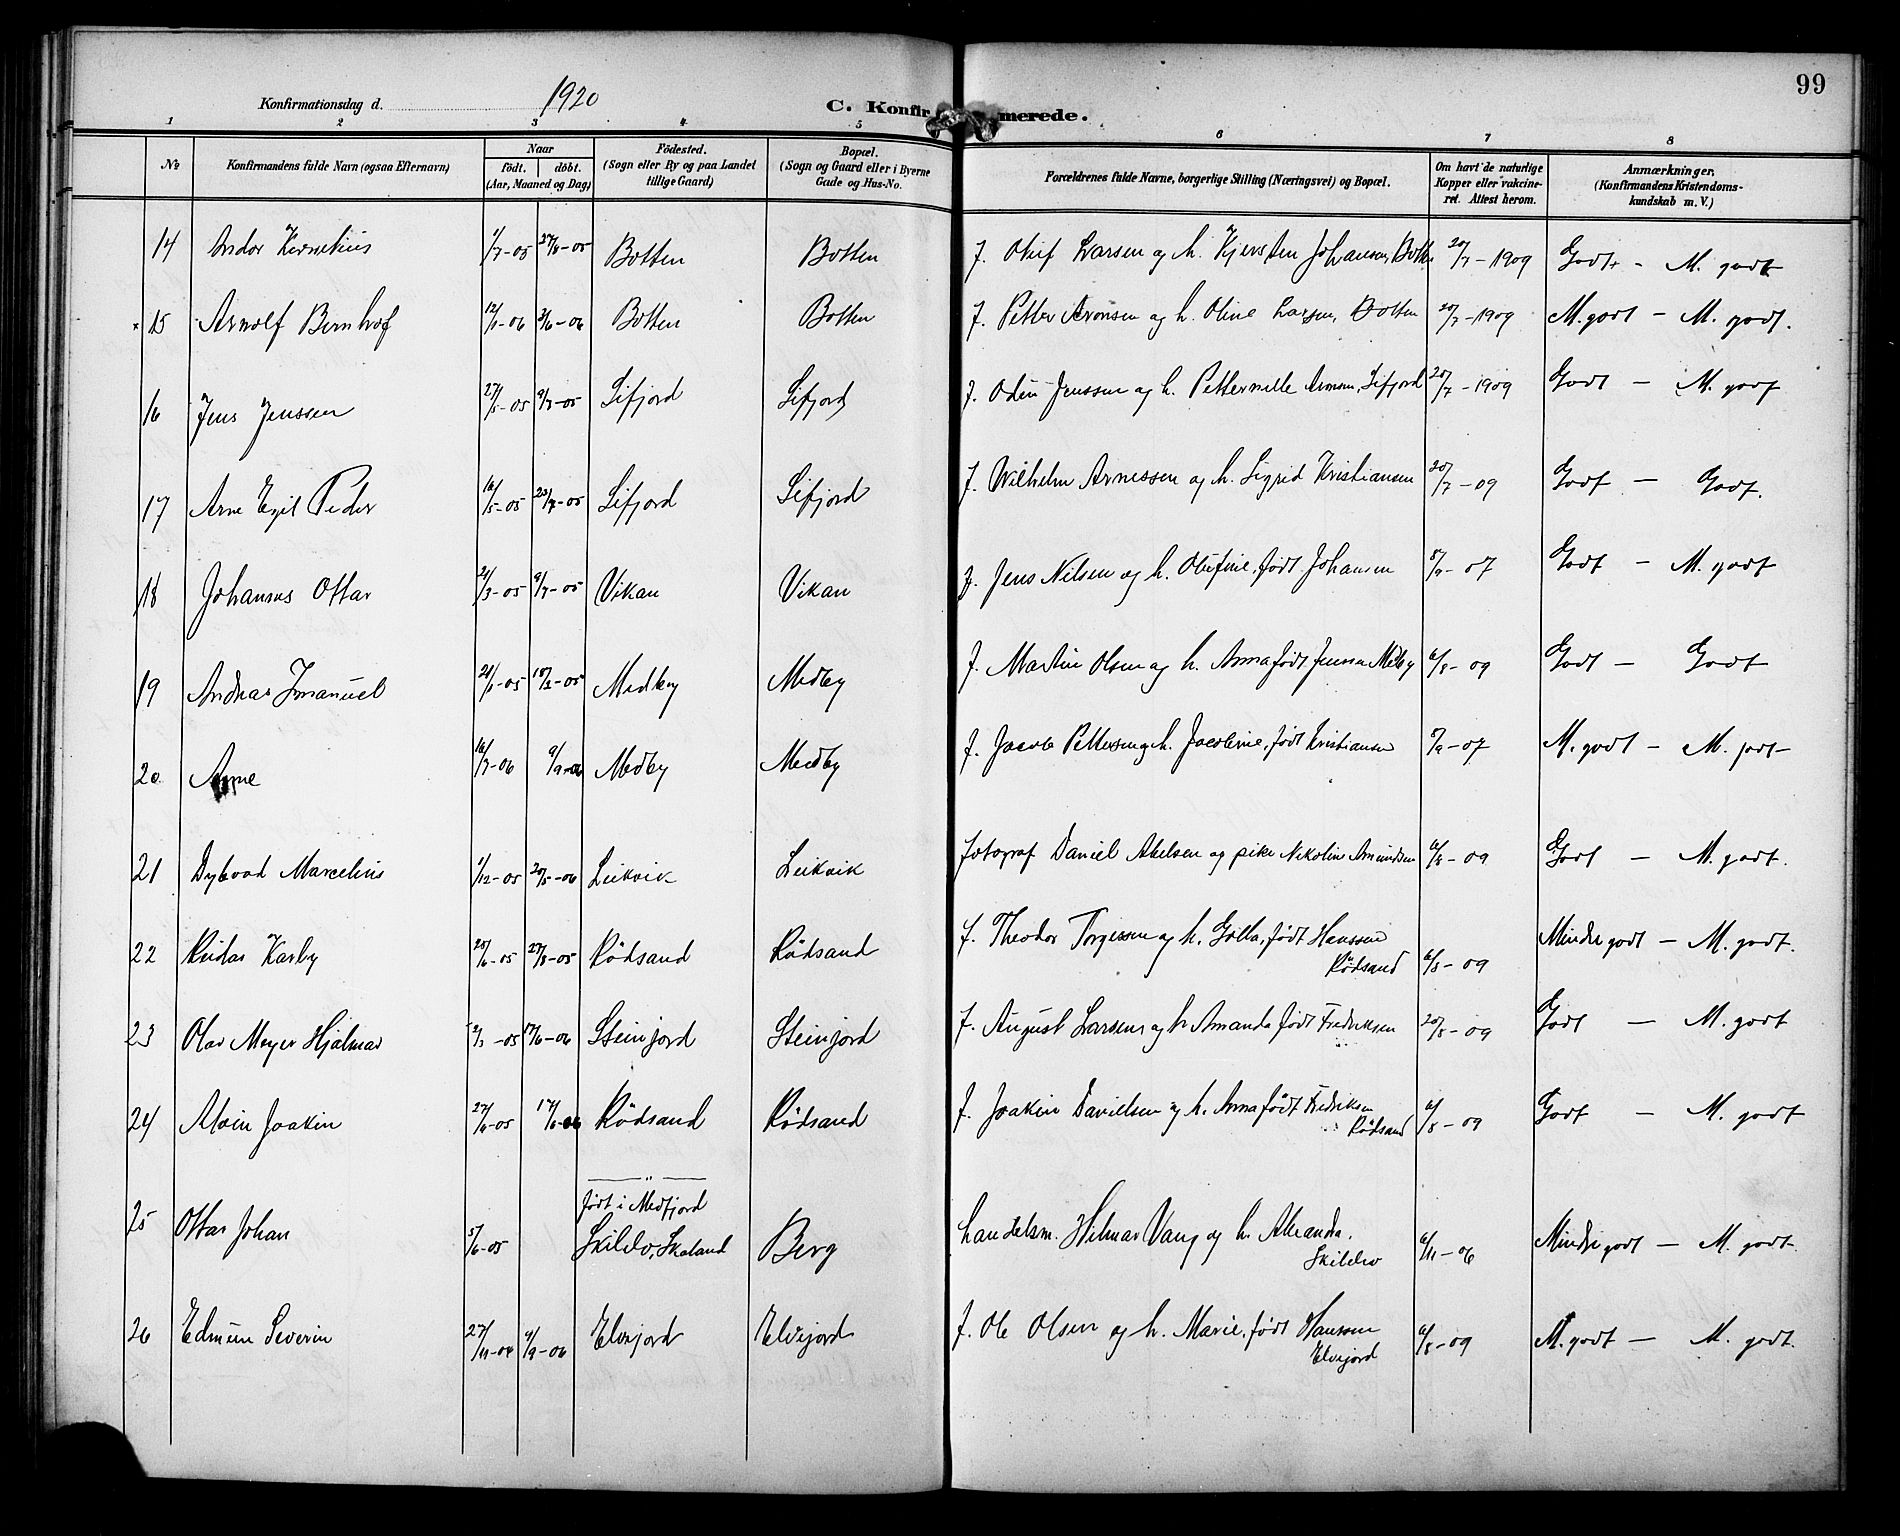 99
Konfirmationsdag d. 1920
C. Konfirmerede.
1 2 3 4 5 6 7 8
№ Konfirmandens fulde Navn (ogsaa Efternavn) Naar født. døbt. (Aar, Maaned og Dag) Fødested. (Sogn eller By og paa Landet tillige Gaard) Bopæl. (Sogn og Gaard eller i Byerne Gade og Hus-No. Forældrenes fulde Navne, borgerlige Stilling (Næringsvei) og Bopæl. Om havt de naturlige Kopper eller vakcineret. Attest herom. Anmærkninger, (Konfirmandens Kristendomskundskab m. V.)
14 Andor Kornelius 1/7-05 27/8-05 Botten Botten f. Oluf Larsen og h. Kjersten Johansen, Botten 20/7-1909 Godt - M. godt
15 Arnolf Bernhof 12/1-06 3/6-06 Botten Botten f. Petter Aronsen og h. Oline Larsen, Botten 20/7-1909 M. godt - M. godt.
16 Jens Jenssen 27/5-05 9/7-05 Sifjord Sifjord f. Odin Jenssen og h. Petternelle Sifjord 20/7-1909 Godt - M. godt
17 Arne Egil Peder 16/5-05 23/7-05 Sifjord Sifjord f. Wilhelm Arnessen og h. Sigrid Kristiansen 20/7-09 Godt - Godt.
18 Johannes Ottar 21/3-05 9/7-05 Vikan Vikan f. Jens Nilsen og h. Olufine, født Johansen 8/9-07 Godt - M. godt
19 Andreas Imanuel 21/1-05 18/3-05 Medby Medby f. Martin Olsen og h. Anna født Jensen Medby 6/8-09 Godt - Godt
20 Arne 16/7-06 9/9-06 Medby Medby f. Jacob Pettersen og h. Jacobine, født Kristiansen 8/9-07 M. godt - M. godt
21 Dybvad Marcelius 1/12-05 20/5-06 Leikvik Leikvik fotograf Daniel Abelsen og pike Nikoline Amundsen 6/8-09 Godt - M. godt.
22 Reidar Karby 25/6-05 27/8-05 Rödsand Rödsand f. Theodor Torgersen og h. Golla, født Hanssen
Rödsand 6/8-09 Mindre godt - M. godt.
23 Olav Meyer Hjalmar -05 17/6-06 Steinfjord Steinfjord f. August Larsen og h Amanda født Fredriksen 20/8-09 Godt - M. godt
24 Alvin Joakin 27/9-05 17/6-06 Rödsand Rödsand f. Joakin Danielsen og h. Anna født Fredriksen
Rödsand 6/8-09 Godt - M. godt
født i Medfjord
25 Ottar Johan 5/6-05 Skildv, Skaland Berg handelsm. Hilmar Vang og h. Alexandra.
Skildv 6/11-06 Mindre godt - M. godt.
26 Edmun Severin 27/11-04 9/9-06 Elvejord Elvejord f. Ole Olsen og h. Marie, født Hanssen
Elvejord 6/8-09 M. godt - M. godt.